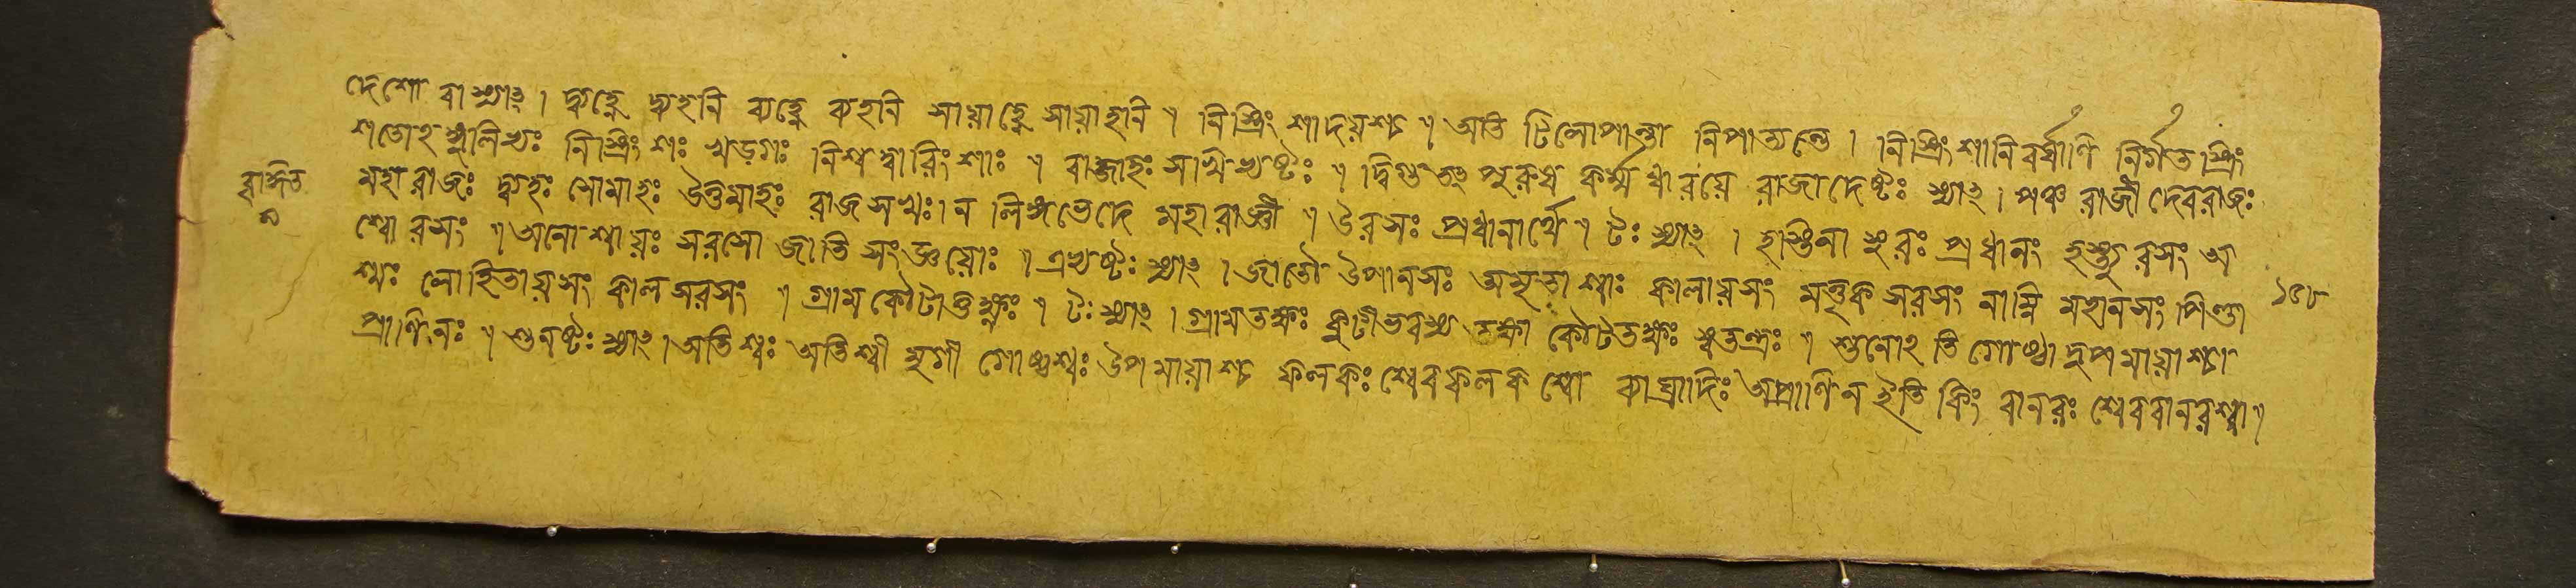 দেশো বা স্যাৎ। দ্ব্যহ্নে দ্ব্যহনি ব্যহ্নে ব্যহনি সায়াহ্নে সায়াহনি ॥ নিস্ত্রিংশাদয়শ্চ ॥ অতি টিলোপান্তা নিপাত্যন্তে। নিস্ত্রিংশানি বর্ষাণি নির্গতস্ত্রিং
শতোঽঙ্গুলিভ্যঃ নিস্ত্রিংশঃ খড়্গঃ নিশ্চত্বারিংশাঃ ॥ রাজাহঃ সখিভ্যষ্টঃ ॥ দ্বিগু তৎপুরুষ কর্ম্মধারয়ে রাজাদেষ্টঃ স্যাৎ। পঞ্চরাজী দেবরাজঃ
মহারাজঃ দ্ব্যহঃ সোমাহঃ উত্তমাহঃ রাজসখঃ। ন লিঙ্গভেদে মহারাজ্ঞী ॥ উরসঃ প্রধানার্থে ॥ টঃ স্যাৎ। হস্তিনা পুরঃ প্রধানং হস্ত্যুরসং অ
শ্বোরসং ॥ অনোশ্মায়ঃ সরসো জাতি সংজ্ঞয়োঃ ॥ এভ্যষ্টঃ স্যাৎ। জাতৌ উপানসঃ অমৃতাশ্মঃ কালায়সং মণ্ডূকসরসং নাম্নি মহানসং পিণ্ডা
শ্মঃ লোহিতায়সং কালসরসং ॥ গ্রামকৌটাত্তক্ষ্ণঃ ॥ টঃ স্যাৎ। গ্রামতক্ষঃ কুটীভবস্য তক্ষা কৌটতক্ষঃ স্বতন্ত্রঃ ॥ শুনোঽতি গোষ্ঠাদুপমায়াশ্চা
প্রাণিনঃ ॥ শুনষ্টঃ স্যাৎ। অতিশ্বঃ অতিশ্বী মৃগী গোষ্ঠশ্বঃ উপমায়াশ্চ ফলকঃ শ্বেব ফলকশ্বো ব্যাঘ্রাদিঃ অপ্রাণিন ইতি কিং বানরঃ শ্বেব বানরশ্বা ॥